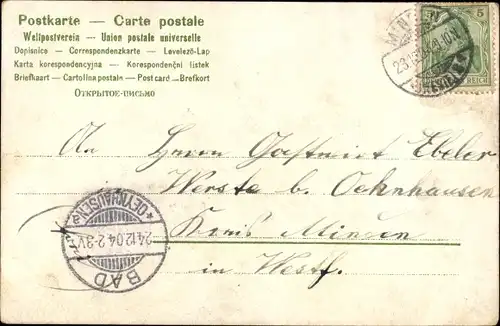 Postkarte — Carte postale
Weltpostverein — Union postale universelle
Dopisnice — Correspondenzkarte — Levelező-Lap
Karta korespondencyjna — Korespondenční lístek
Briefkaart — Cartolina postale — Post card — Brefkort
Открытое-письмо
5
REICH
An Herrn Gastwirt Ebeler
Werste b. Oehnhausen
Kreis Minden
in Westf.
BAD
OEYNHAUSEN
a
24.12.04.2-3V.